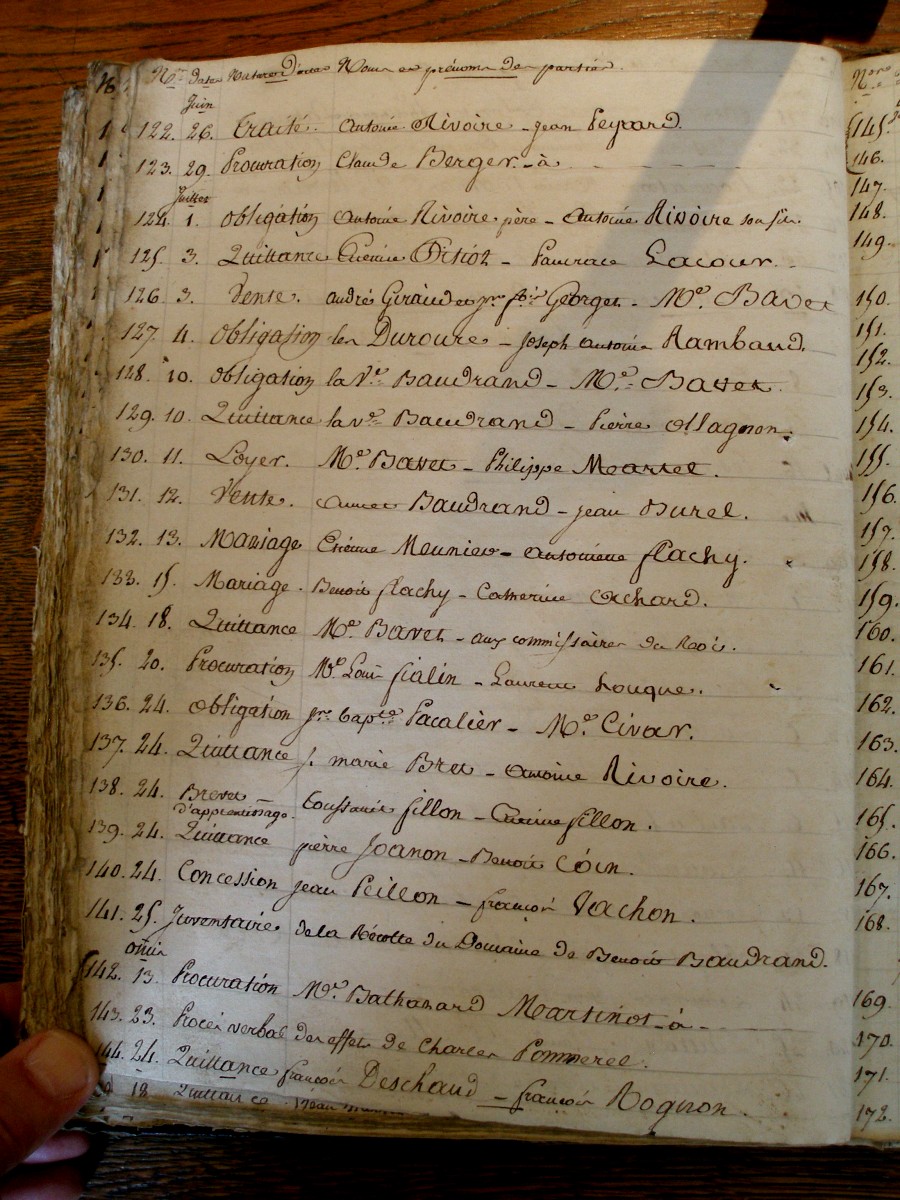 Nos Dates Nature D'actes Noms et prénoms des parties.
Juin
122. 26. Traité. Antoine Rivoire - jean Peyrard.
123. 29. Procuration Claude Berger - à
Juillet
124. 1. Obligation Antoine Rivoire père - Antoine Rivoire son fils.
125. 3. Quittance Etienne - Pancrace Lacour.
126 3. Vente. andré Giraud et Georges - Me. Bavet
127. 4. Obligation les Duroure - Joseph antoine Rambaud.
128. 10. Obligation la Ve. Baudrand - Me. Bavet.
129. 10. Quittance la ve. Baudrand - Pierre Ollagnon.
130. 11. Loyer. Me. Bavet - Philippe Martel.
131. 12. Vente. Baudrand - jean Burel.
132. 13. Mariage Etienne Meunier - antoinette flachy.
133. 15. Mariage. Benoit flachy - Catherine Achard.
134. 18. Quittance Me. Bavet - aux commissaires du Roi.
135. 20. Procuration Mr. Louis fialin - Laurent
136. 24. Obligation jn. bapte. Pacalier - Me. Civar.
137. 24. Quittance marie Bret - Antoine Rivoire.
138. 24. Brevet
d'apprentissage. Toussaint fillon - fillon.
139. 24. Quittance pierre Joanon - Benoit
140. 24. Concession jean Peillon - françois Vachon.
141. 25. Inventaire de la Récolte du Domaine de Benoit Baudrand.
142. 13. Procuration Mr. Bathanard Martinot - à -
143. 23. Procès verbal des effets de Charles Pommerel.
144. 24. Quittance françois Deschaud - françois Rognon.
18 Quittance
Nos
145.
146.
147.
148.
149.
150.
151.
152.
153.
154.
155.
156.
157.
158.
159.
160.
161.
162.
163.
164.
165.
166.
167.
168.
169.
170.
171.
172.